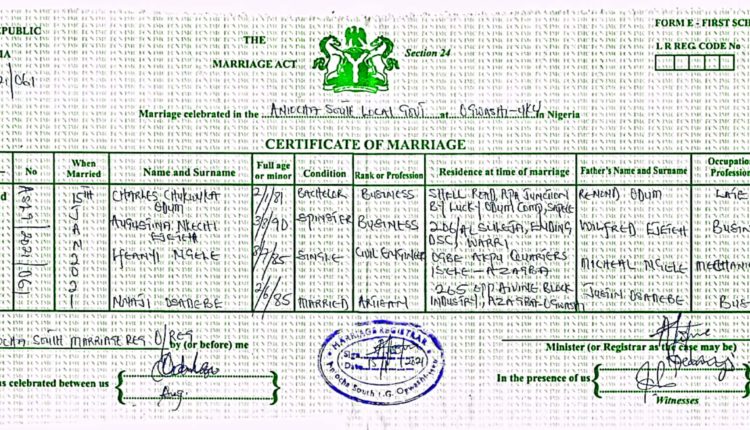 REPUBLIC
THE
MARRIAGE ACT
Section 24
FORM E - FIRST SCH
L R REG. CODE No
21/061
Marriage celebrated in the ANIOCHA SOUTH LOCAL GOVT at OGWASHI-UKU in Nigeria
CERTIFICATE OF MARRIAGE
No When Married Name and Surname Full age or minor Condition Rank or Profession Residence at time of marriage Father's Name and Surname Occupation Profession
15TH CHARLES CHUKWUKA ODUM 2/1/81 BACHELOR BUSINESS SHELL ROAD, JUNCTION BY LUCKY ODUM SAPELE ODUM LATE
JAN AUGUSTINA NKECHI 90 SPINSTER BUSINESS DSC, WARRI WILFRED BUSIN
2021 IFEANYI NGELE 85 SINGLE CIVIL ENGINEER OGBE AKPU QUARTERS ISELE-AZAGBA MICHEAL NGELE MECHANI
2/6/85 MARRIED ARTISAN 265 OPP DIVINE BLOCK INDUSTRY, AZAGBA-OGWASHI JUSTIN OSADEBE BUS
SOUTH MARRIAGE REG O/REG
by (or before) me
s celebrated between us
Aug.
MARRIAGE REGISTRAR
Sign.
Date 2021
Aniocha South L.G. Ogwashi-Uku
Minister (or Registrar as the case may be)
In the presence of us
Witnesses